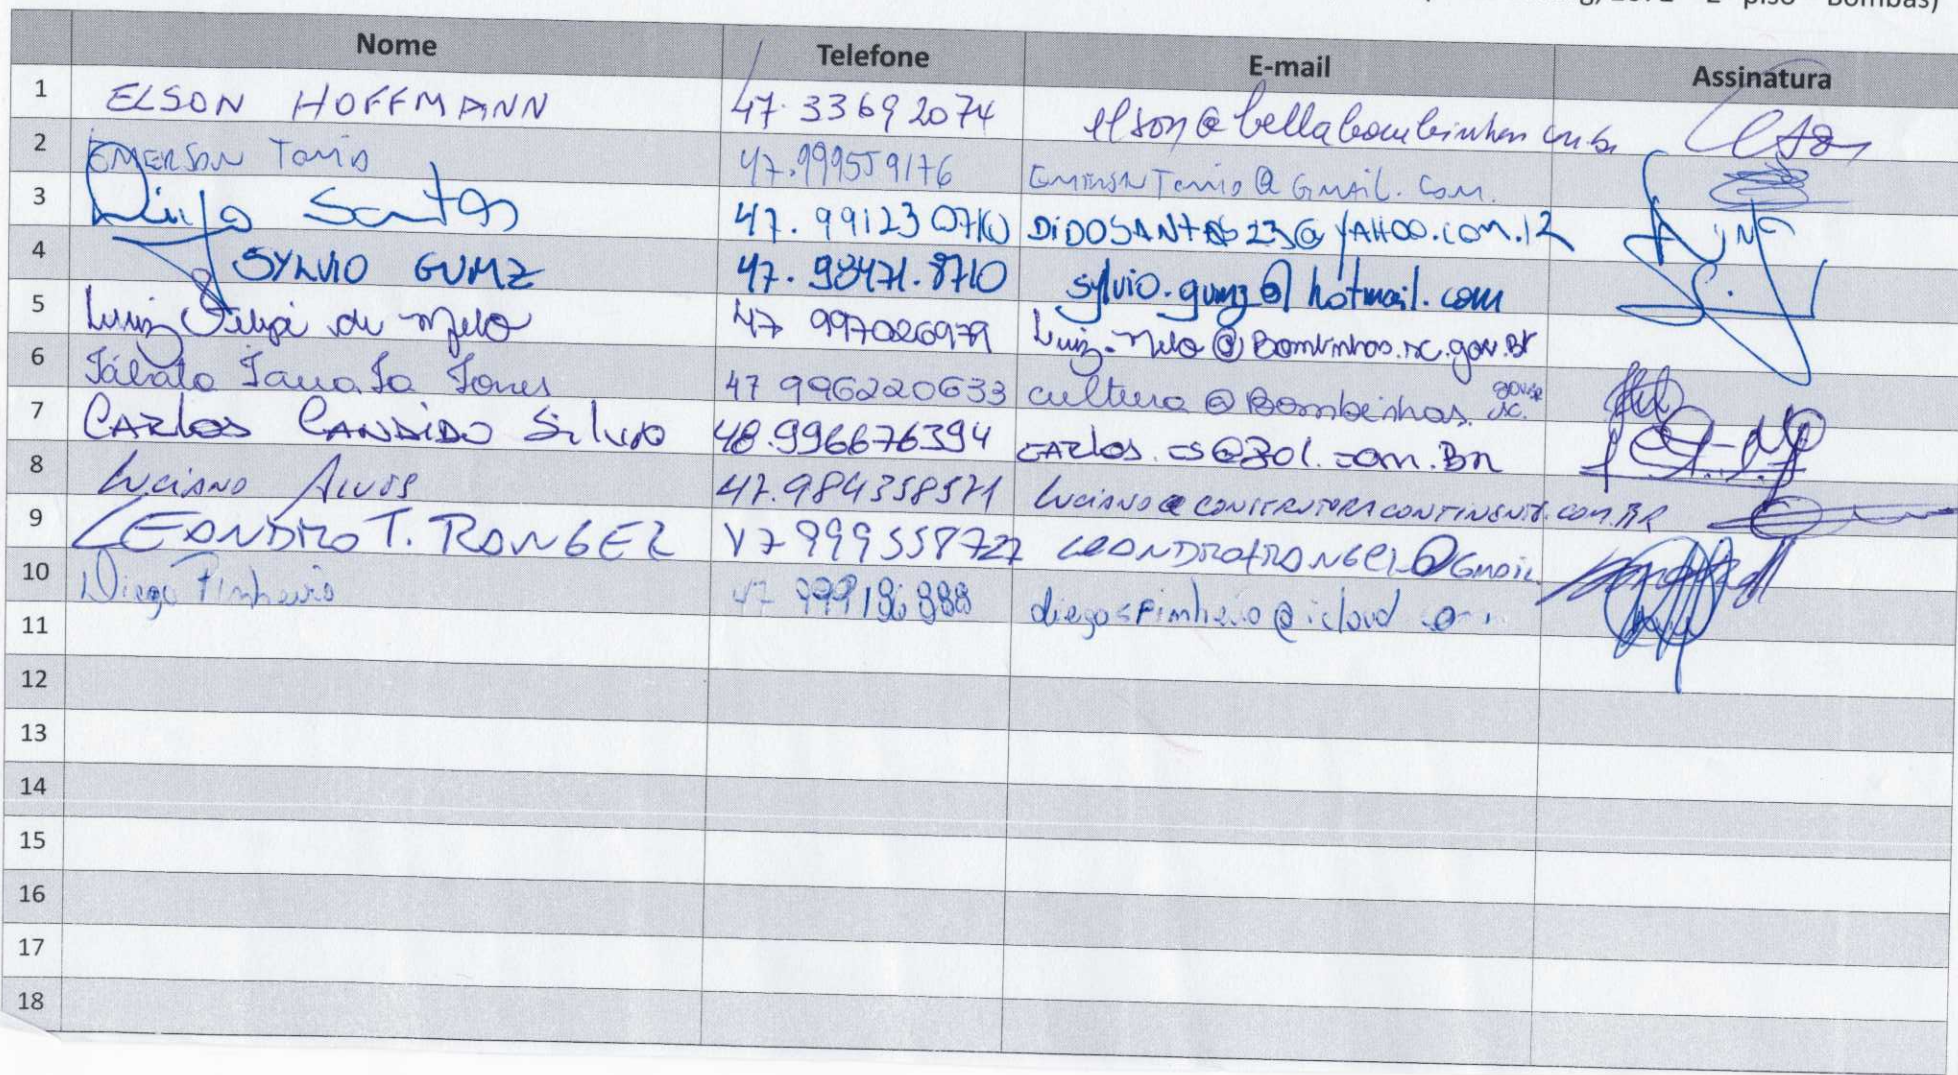 2 piso Bombas)
Nome Telefone E-mail Assinatura
1 ELSON HOFFMANN 47.33692074 elson@bellabombinhas
2 EMERSON Tomio 47.999559176 EmersonTomio@Gmail.com.
3 Santos 47. DiDOSANTOS23@YAHOO.com.
4 SYLVIO GUMZ 47.98471.8710 sylvio.gumz@hotmail.com
5 Luiz Filipi de Melo 47 997026979 Luiz.Melo@Bombinhas.sc.gov.Br
6 47 996220633 cultura@Bombinhas.sc.
7 CARLOS CANDIDO Silva 48.996676394 CARLOS.CS@BOL.com.Br
8 Luciano Alves 47.984358571 Luciano@CONSTRUTORACONTINENTE.COM.BR
9 LEANDRO T. RANGEL 47 999558727 LEANDROTRANGEL@Gmail.
10 Diego Pinheiro 47 999186888 diegospinheiro@icloud
11
12
13
14
15
16
17
18